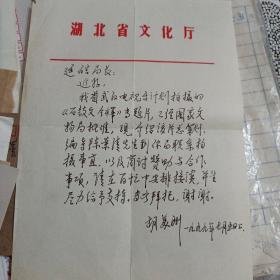 湖北省文化厅
局长：
近好。
我省武汉电视台计划拍摄的
专题片，经国家文
物局批准，现介绍该片总策划、
编导陈 先生到你局联系拍
摄事宜，以及商讨赞助与合作
事项，请在百忙中安排接洽，并望
尽力给予支持。专此拜托，谢谢。
胡美洲
一九九九年 月